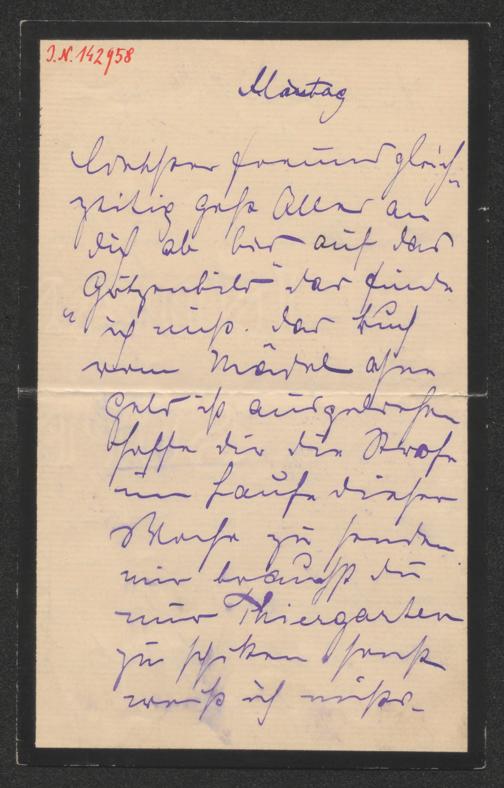 J.N. 142958
Montag
Liebster Freund gleich-
zeitig geht Alles an
dich ab bis auf das
„Götzenbild“ das finde
ich nicht. das Buch
vom Mädel ohne
Geld ist ausgeliehen
hoffe dir die Strofe
im Laufe dieser
Woche zu senden
mir brauchst du
nur Thiergarten
zu schiken sonst
weiß ich nichts.